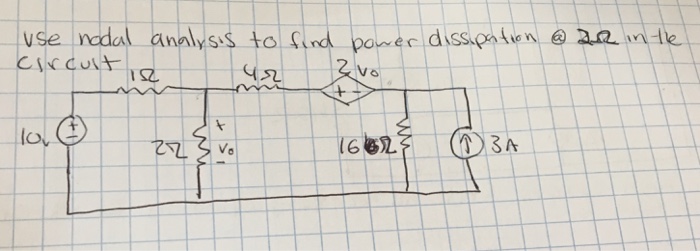 use nodal analysis to find power dissipation @ 2Ω in the
circuit
1Ω 4Ω 2vo
+ -
+
10v
+
2Ω
vo
-
16Ω
3A